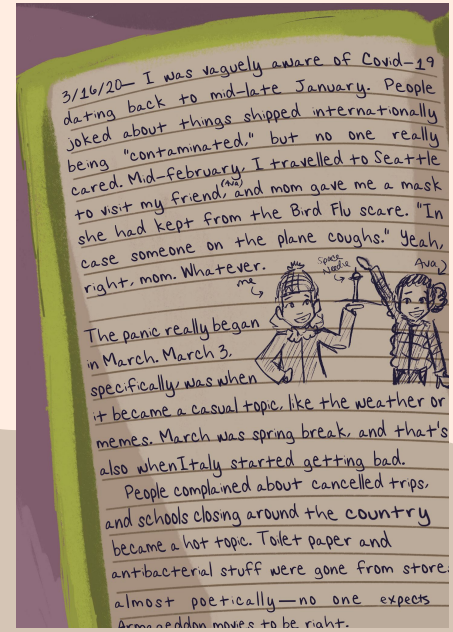 3/16/20— I was vaguely aware of Covid-19
dating back to mid-late January. People
joked about things shipped internationally
being "contaminated," but no one really
cared. Mid-february, I travelled to Seattle
to visit my friend, (Ava) and mom gave me a mask
she had kept from the Bird Flu scare. "In
case someone on the plane coughs." Yeah,
right, mom. Whatever.
me
Space
Needle
Ava
The panic really began
in March. March 3,
specifically, was when
it became a casual topic, like the weather or
memes. March was spring break, and that's
also when Italy started getting bad.
People complained about cancelled trips,
and schools closing around the country
became a hot topic. Toilet paper and
antibacterial stuff were gone from store
almost poetically—no one expects
Armageddon movies to be right.